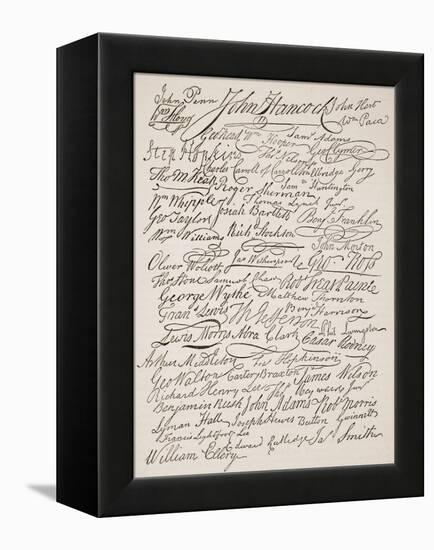 John Penn John Hancock John Hart
Wm Floyd Wm Paca
Geo Read Wm Hooper Saml Adams
Step Hopkins Thos Nelson jr Geo Clymer
Charles Carroll of Carrollton Elbridge Gerry
Tho M Kean Roger Sherman Saml Huntington
Wm Whipple Thomas Lynch Junr
Geo Taylor Josiah Bartlett Benj Franklin
Wm Williams Richd Stockton John Morton
Oliver Wolcott Jno Witherspoon Geo Ross
Thos Stone Samuel Chase Robt Treat Paine
George Wythe Matthew Thornton
Frans Lewis Th Jefferson Benj Harrison
Lewis Morris Abra Clark Phil Livingston
Caesar Rodney
Arthur Middleton Fras Hopkinson
Geo Walton Carter Braxton James Wilson
Richard Henry Lee Thos Heyward Junr
Benjamin Rush John Adams Robt Morris
Lyman Hall Joseph Hewes Button Gwinnett
Francis Lightfoot Lee
Edward Rutledge Jas Smith
William Ellery